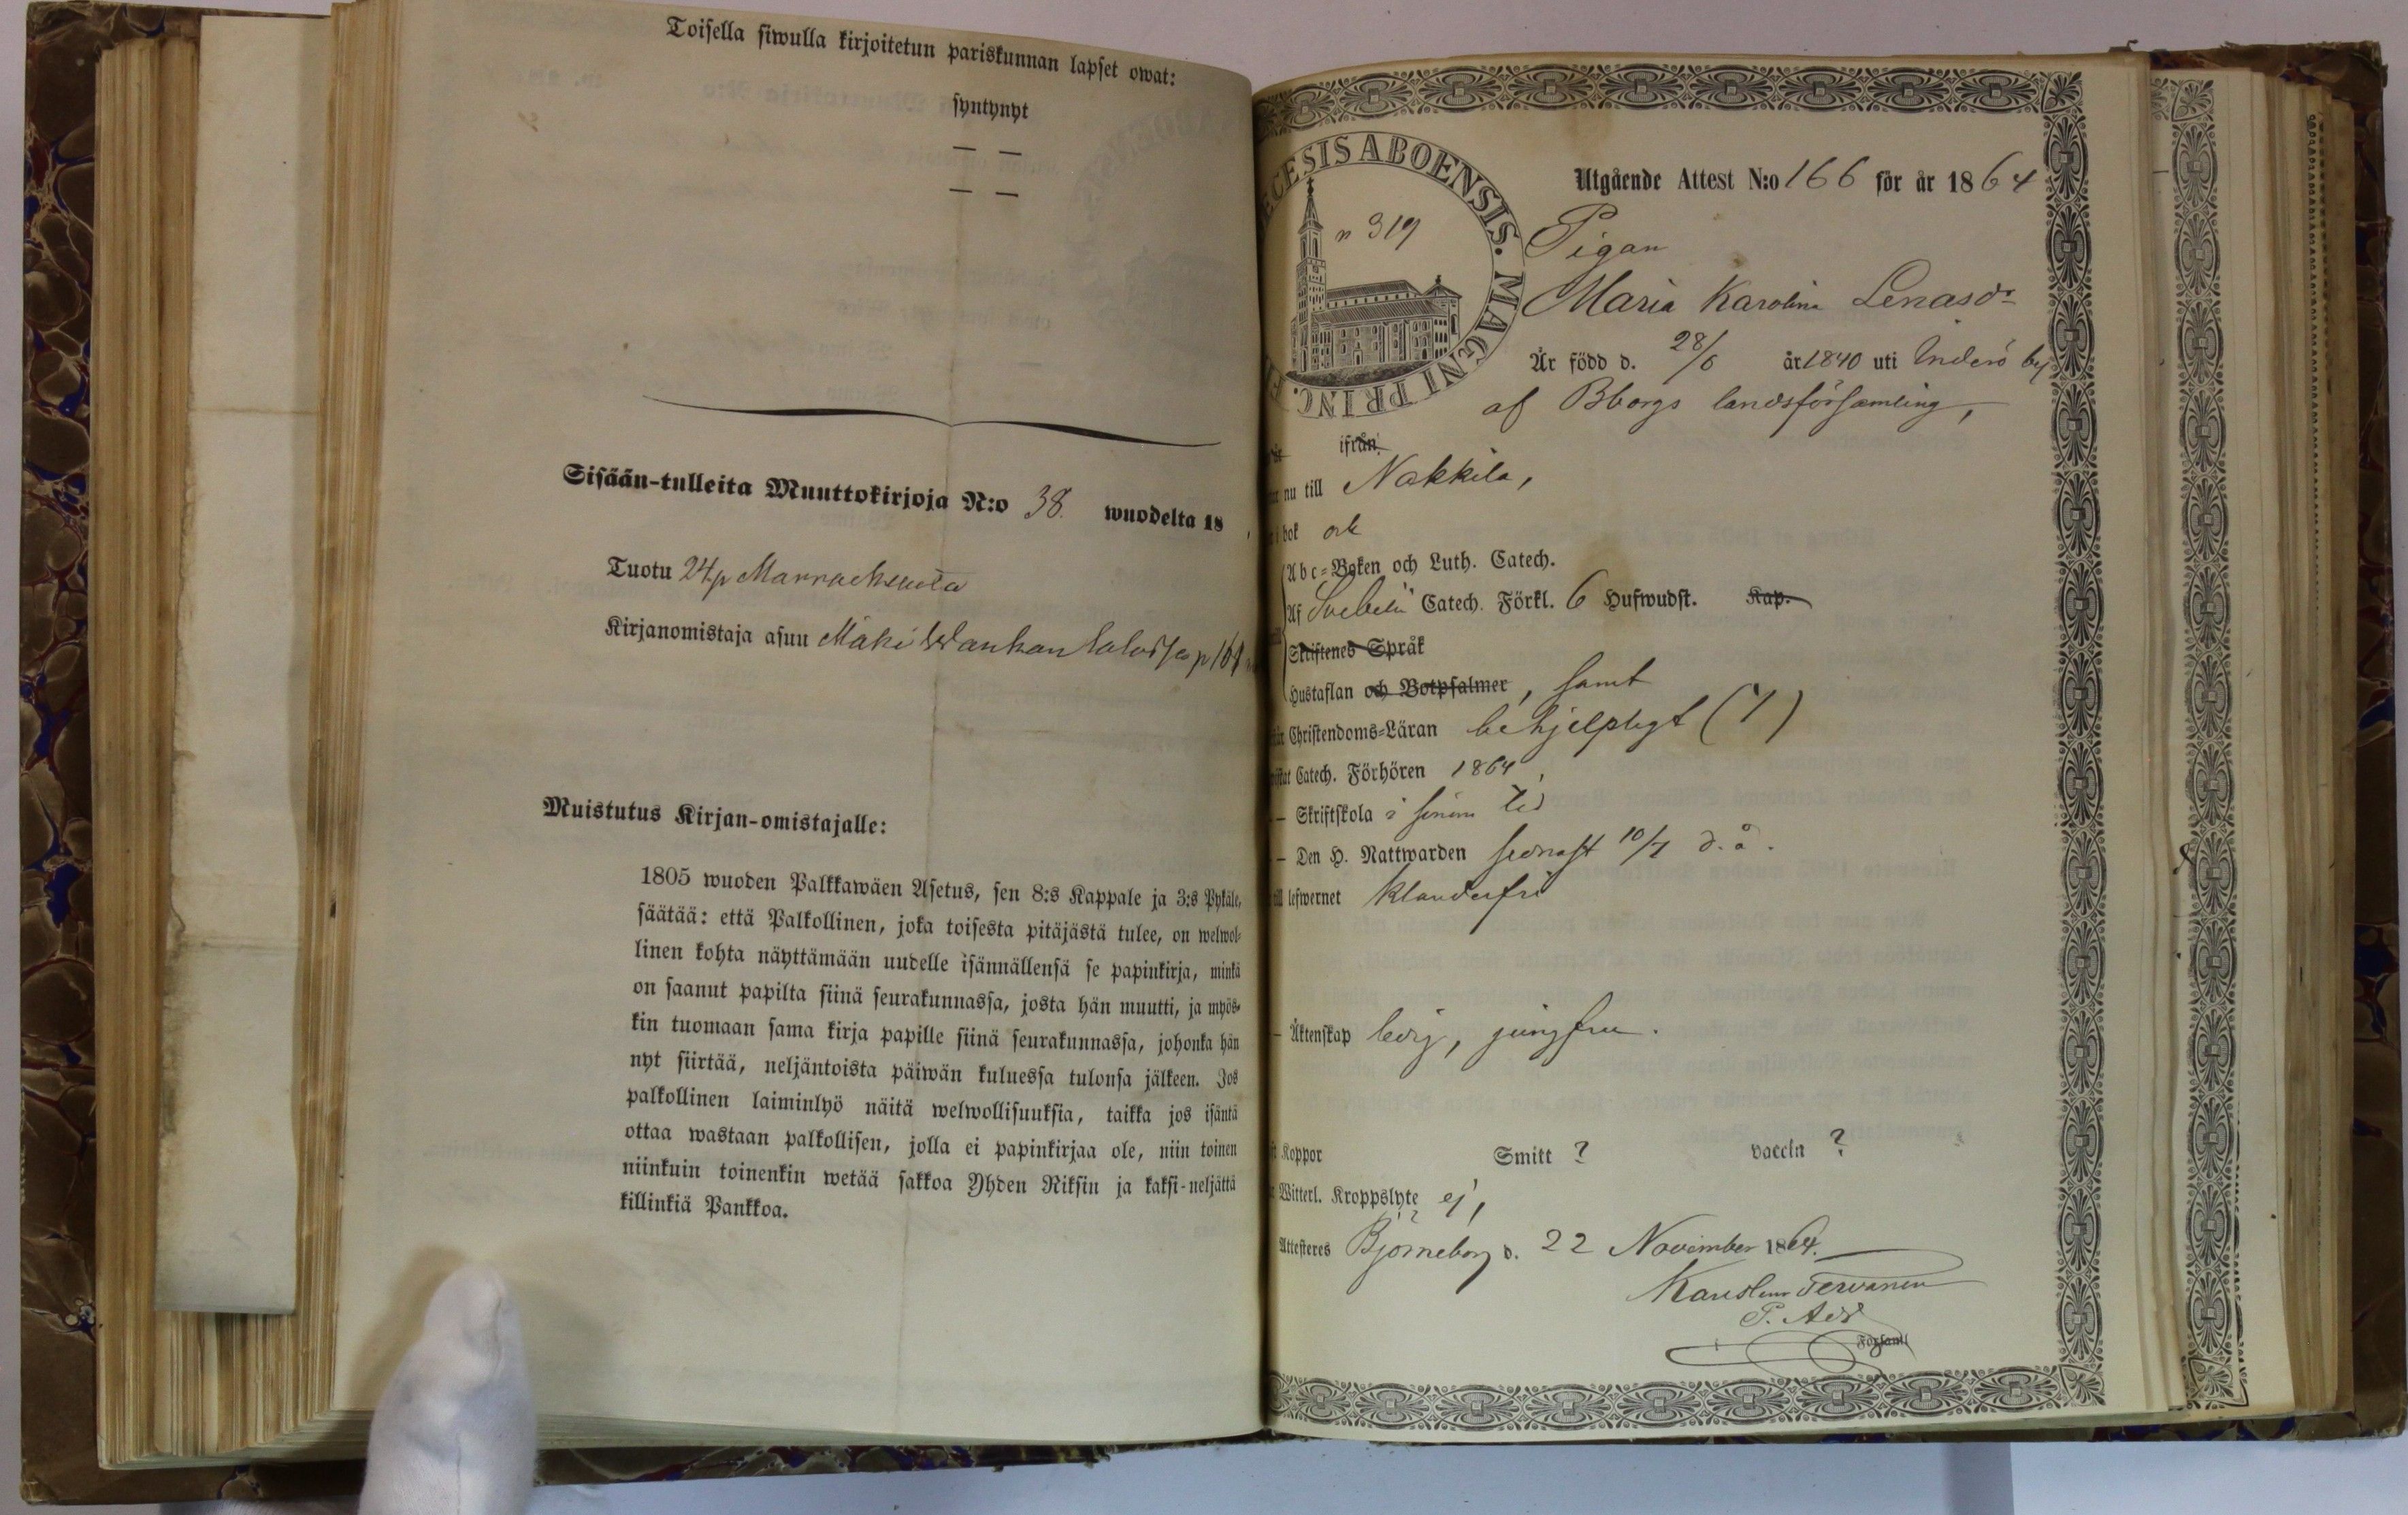 Toisella siwulla kirjoitetun pariskunnan lapset owat:
syntynyt
— —
— —
Sisään-tulleita Muuttokirjoja N:o 38. wuodelta 18
Tuotu 24 p Marraskuuta
Kirjanomistaja asuu Mäki Wanhan talossa p 164
Muistutus Kirjan-omistajalle:
1805 wuoden Palkkawäen Asetus, sen 8:s Kappale ja 3:s Pykäle,
säätää: että Palkollinen, joka toisesta pitäjästä tulee, on welwol-
linen kohta näyttämään uudelle isännällensä se papinkirja, minkä
on saanut papilta siinä seurakunnassa, josta hän muutti, ja myös-
kin tuomaan sama kirja papille siinä seurakunnassa, johonka hän
nyt siirtää, neljäntoista päiwän kuluessa tulonsa jälkeen. Jos
palkollinen laiminlyö näitä welwollisuuksia, taikka jos isäntä
ottaa wastaan palkollisen, jolla ei papinkirjaa ole, niin toinen
niinkuin toinenkin wetää sakkoa Yhden Riksin ja kaksi-neljättä
killinkiä Pankkoa.
ECESIS ABOENSIS. MAGNI PRINC.
n 319
Utgående Attest N:o 166 för år 1864
Pigan
Maria Karolina Lenasdr
Är född d. 28/6 år 1840 uti Inderö by
af Bborgs landsförsamling,
ifrån
nu till Nakkila,
bok och
Abc-Boken och Luth. Catech.
Af Svebelii Catech. Förkl. 6 Hufwudst. Kap.
Skriftenes Språk
Hustaflan och Botpsalmer, samt
Christendoms-Läran behjelpligt (1)
Catech. Förhören 1864,
— Skriftskola i sinom tid
— Den H. Nattwarden sednast 10/7 d. å.
till lefwernet klanderfri
— Äktenskap ledig, jungfru.
Koppor Smitt ? vaccin ?
Witterl. Kroppslyte ej,
Attesteres Björneborg d. 22 November 1864.
Tervanen
P. Adj
Församl